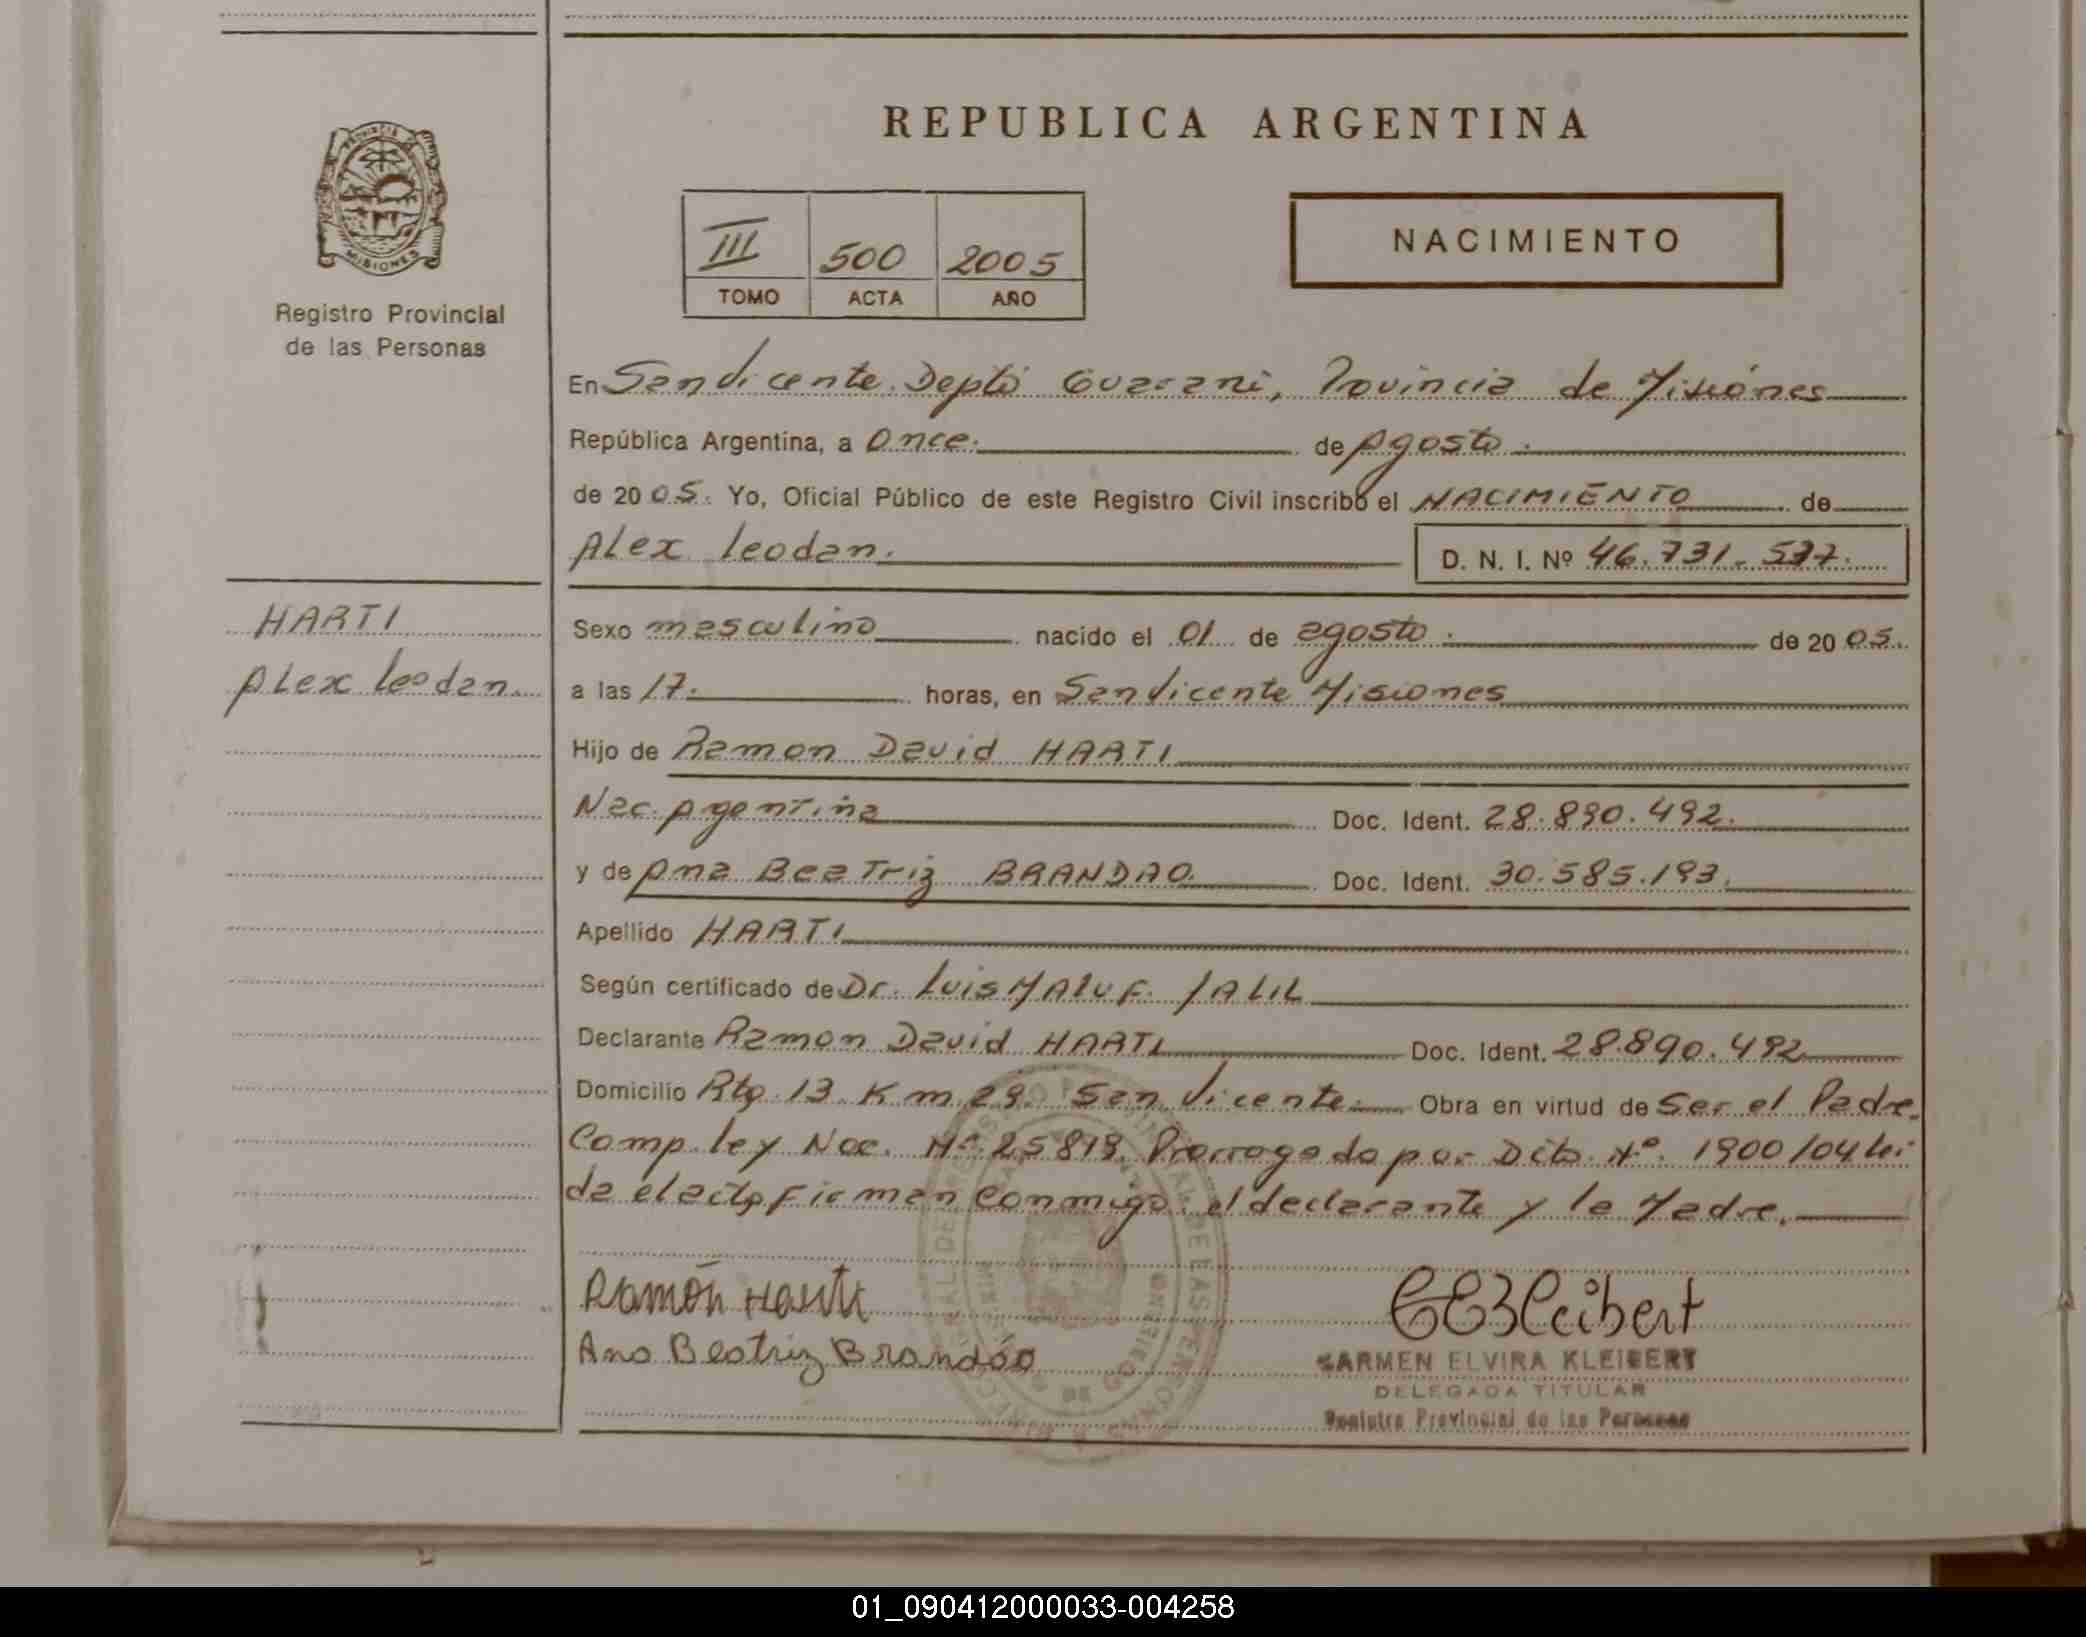 REPUBLICA ARGENTINA
PROVINCIA
MISIONES
Registro Provincial
de las Personas
III 500 2005
TOMO ACTA AÑO
NACIMIENTO
En San Vicente. Depto Guarani, Provincia de Misiones
República Argentina, a Once. de Agosto.
de 2005. Yo, Oficial Público de este Registro Civil inscribo el NACIMIENTO de
Alex Leodan. D. N. I. Nº 46.731.537.
HARTI
Alex Leodan.
Sexo masculino nacido el 01 de agosto. de 2005.
a las 17. horas, en San Vicente Misiones
Hijo de Ramon David HARTI
Nac. Agentina Doc. Ident. 28.890.492.
y de Ana Beatriz BRANDAO. Doc. Ident. 30.585.193.
Apellido HARTI
Según certificado de Dr. Luis MALUF JALIL
Declarante Ramon David HARTI Doc. Ident. 28.890.492
Domicilio Rta 13 Km 29. San Vicente. Obra en virtud de Ser el Padre.
Comp. ley Nac. Nº 25819. Prorrogada por Dcto. Nº. 1900/04 lei
da el acta firman conmigo el declarante y la Madre.
Ramón Harti
Ana Beatriz Brandáo
CEKleibert
CARMEN ELVIRA KLEIBERT
DELEGADA TITULAR
Registro Provincial de las Personas
01_090412000033-004258